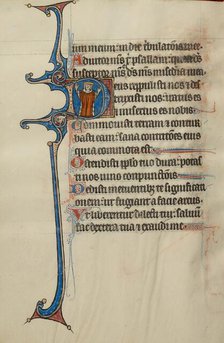 gium meum: in die tribulationis mee
Adiutor ms t psallam: qr deus
susceptor ms ds ms misericordia mea
Deus repulisti nos et de
struxisti nos: iratus es
et misertus es nobis
Commouisti terram et contur
basti eam: sana contritiones eius
quia commota est
Ostendisti populo tuo dura: potas
ti nos uino conpunctionis
Dedisti metuentibus te significati
onem: ut fugiant a facie arcus
Ut liberentur dilecti tui: saluum
fac dextera tua et exaudi me